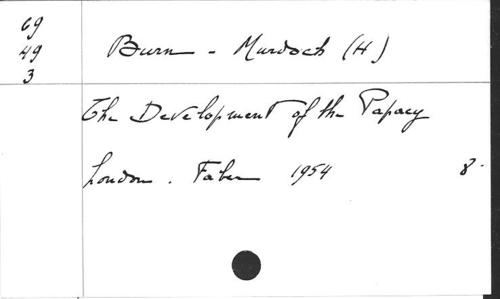 69
49
3
Burn - Murdoch (H)
The Development of the Papacy
London. Faber 1954 8.